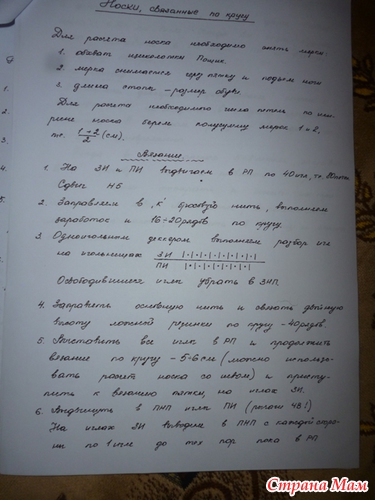 Носки, связанные по кругу
Для расчета носка необходимо снять мерки:
1. обхват щиколотки Пощик.
2. мерка снимается через пятку и подъем ноги
3. длина стопы - размер обуви.
Для расчета необходимого числа петель по ши-
рине носка берем полусумму мерок 1 и 2,
т.е. (1+2)/2 (см).
Вязание.
1. На ЗИ и ПИ выдвигаем в РП по 40 игл,
Сдвиг Н5.
2. Заправляем в "К" бросовую нить, выполняем
заработок и 16-20 рядов по кругу.
3. Одноигольным деккером выполняем разбор игл
на игольницах ЗИ |·|·|·|·|·|·|·|·|
ПИ |·|·|·|·|·|·|·|·|
Освободившиеся иглы убрать в ЗНП.
4. Заправить основную нить и связать двойную
высоту ложной резинки по кругу - 40 рядов.
5. Выставить все иглы в РП и продолжить
вязание по кругу - 5-6 см (можно использо-
вать расчет носка со швом) и присту-
пить к вязанию пятки, на иглах ЗИ.
6. Выдвинуть в ПНП иглы ПИ (рычаг 48!)
На иглах ЗИ выводим в ПНП с каждой сторо-
ны по 1 игле до тех пор пока в РП
Страна Мам